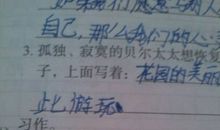 自己,那么我们的人
3.孤独、寂寞的贝尔太太想恢复
子,上面写着:花园的美丽
止此游玩
习作。